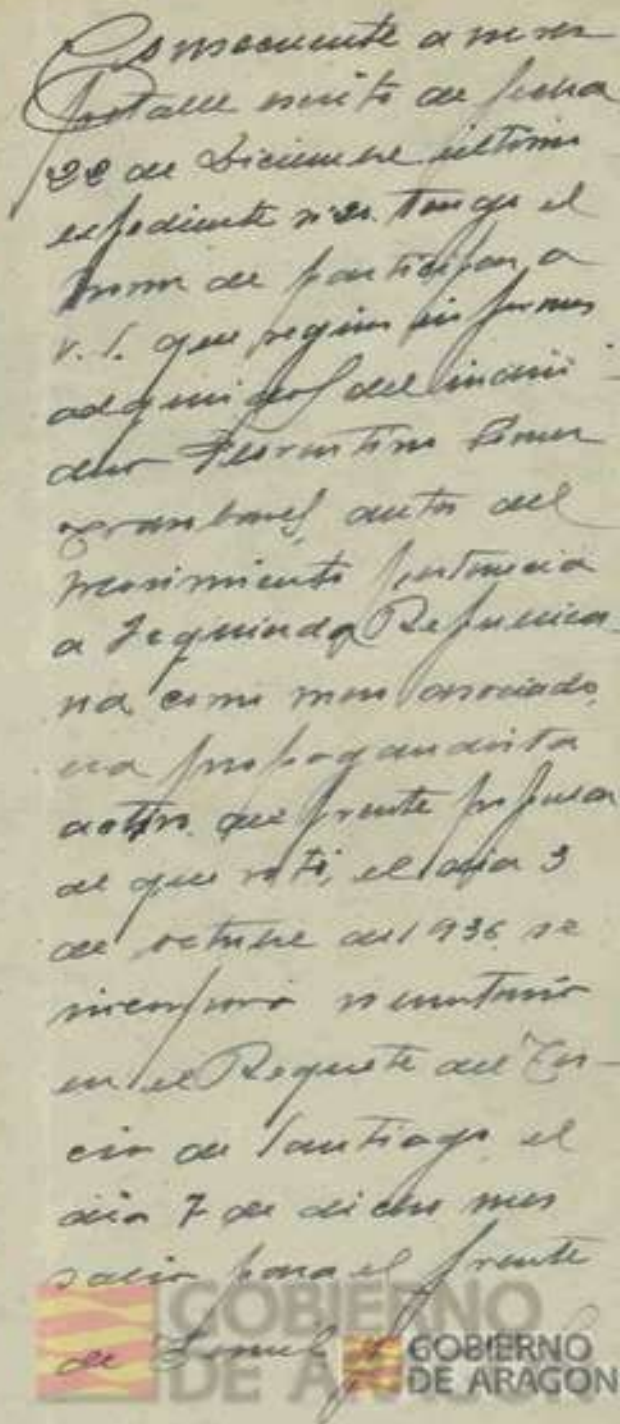 Consecuente a su res
petable escrito de fecha
22 de Diciembre último
expediente tengo el
honor de participar a
V.I. que según informes
adquiridos del indivi-
duo Florentino
autos del
pertenecia
a Izquierda Republica-
na como mero asociado,
era propagandista
activo del frente popular
al que votó, el día 3
de octubre del 1936 se
incorporó voluntario
en el Requeté del Ter-
cio de Santiago, el
día 7 de dicho mes
salió para el frente
de Teruel
GOBIERNO
DE ARAGON
GOBIERNO
DE ARAGON